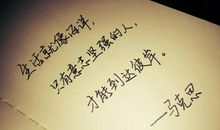 生活就像海洋,
只有意志坚强的人,
才能到达彼岸。
——马克思